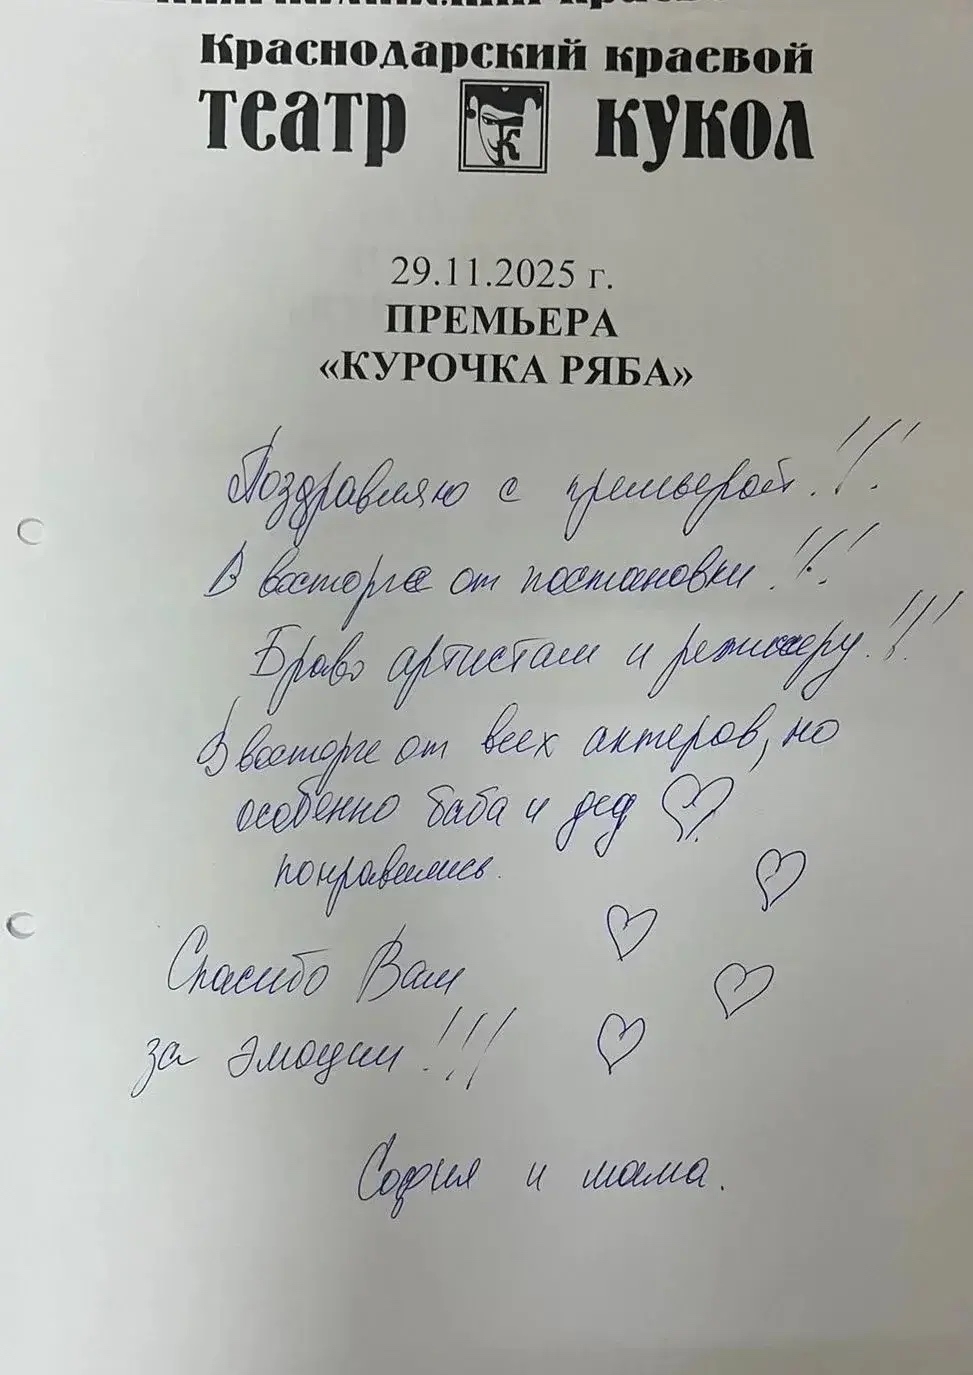 Краснодарский краевой
театр кукол
К
29.11.2025 г.
ПРЕМЬЕРА
«КУРОЧКА РЯБА»
Поздравляю с премьерой!!!
В восторге от постановки!!!
Браво артистам и режиссеру!!!
В восторге от всех актеров, но
особенно баба и дед
понравились.
Спасибо Вам
за эмоции!!!
София и мама.